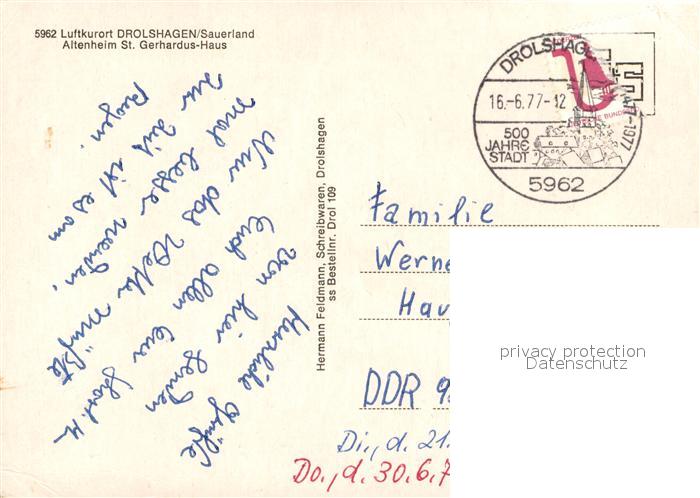 5962 Luftkurort DROLSHAGEN/Sauerland
Altenheim St. Gerhardus-Haus
Herzliche Grüße
von hier senden
Euch allen Eur
Nur das Wetter müßte
mal besser werden,
zur Zeit ist es am
Regen.
Hermann Feldmann, Schreibwaren, Drolshagen
ss Bestellnr. Drol 109
DROLSHAGE
1477-1977
16.-6.77-12
500
JAHRE
STADT
5962
Familie
Werne
Hau
DDR 9
Di., d. 21.
Do., d. 30.6.7
privacy protection
Datenschutz